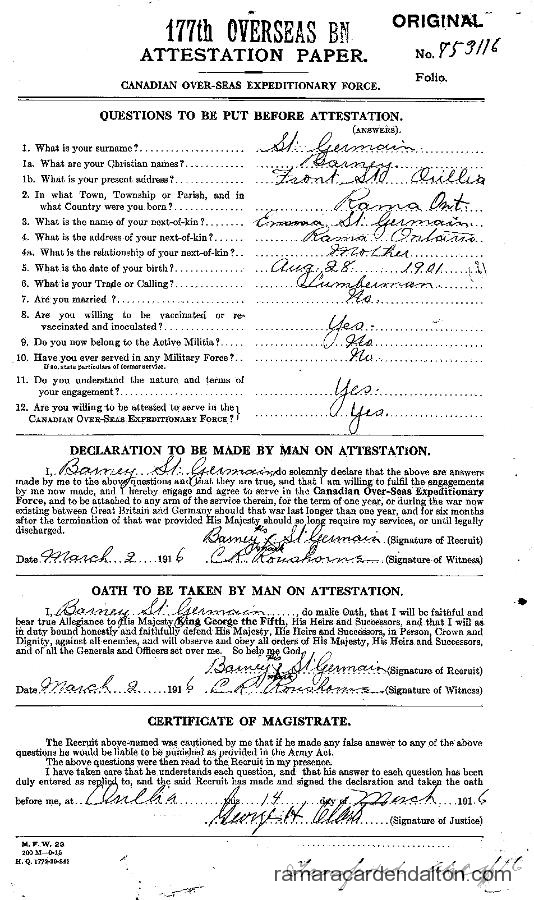 177th OVERSEAS BN
ORIGINAL
ATTESTATION PAPER.
No. 753116
Folio.
CANADIAN OVER-SEAS EXPEDITIONARY FORCE.
QUESTIONS TO BE PUT BEFORE ATTESTATION.
(ANSWERS).
1. What is your surname? St. Germain
1a. What are your Christian names? Barney
1b. What is your present address? Front St Orillia
2. In what Town, Township or Parish, and in
what Country were you born? Rama Ont.
3. What is the name of your next-of-kin? Emma St. Germain
4. What is the address of your next-of-kin? Rama Ontario
4a. What is the relationship of your next-of-kin? Mother
5. What is the date of your birth? Aug 28 1901
6. What is your Trade or Calling? Lumberman
7. Are you married? No.
8. Are you willing to be vaccinated or re-
vaccinated and inoculated? Yes.
9. Do you now belong to the Active Militia? No
10. Have you ever served in any Military Force? No.
If so, state particulars of former service.
11. Do you understand the nature and terms of
your engagement? Yes.
12. Are you willing to be attested to serve in the
CANADIAN OVER-SEAS EXPEDITIONARY FORCE? Yes.
DECLARATION TO BE MADE BY MAN ON ATTESTATION.
I, Barney St. Germain do solemnly declare that the above are answers
made by me to the above questions and that they are true, and that I am willing to fulfil the engagements
by me now made, and I hereby engage and agree to serve in the Canadian Over-Seas Expeditionary
Force, and to be attached to any arm of the service therein, for the term of one year, or during the war now
existing between Great Britain and Germany should that war last longer than one year, and for six months
after the termination of that war provided His Majesty should so long require my services, or until legally
discharged.
his
Barney X St. Germain (Signature of Recruit)
mark
Date March 2 1916 (Signature of Witness)
OATH TO BE TAKEN BY MAN ON ATTESTATION.
I, Barney St. Germain, do make Oath, that I will be faithful and
bear true Allegiance to His Majesty King George the Fifth, His Heirs and Successors, and that I will as
in duty bound honestly and faithfully defend His Majesty, His Heirs and Successors, in Person, Crown and
Dignity, against all enemies, and will observe and obey all orders of His Majesty, His Heirs and Successors,
and of all the Generals and Officers set over me. So help me God.
his
Barney X St Germain (Signature of Recruit)
mark
Date March 2 1916 (Signature of Witness)
CERTIFICATE OF MAGISTRATE.
The Recruit above-named was cautioned by me that if he made any false answer to any of the above
questions he would be liable to be punished as provided in the Army Act.
The above questions were then read to the Recruit in my presence.
I have taken care that he understands each question, and that his answer to each question has been
duly entered as replied to, and the said Recruit has made and signed the declaration and taken the oath
before me, at Orillia this 14 day of March 1916
George H Clark (Signature of Justice)
M. F. W. 23
200 M—9-15
H. Q. 1772-39-841
ramaracardendalton.com